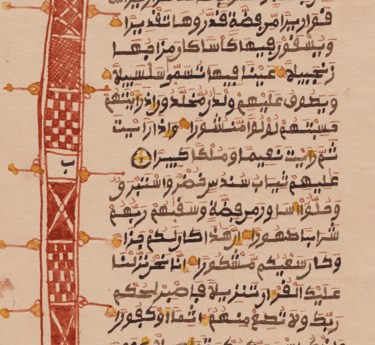 قواريرا من فضة قدروها تقديرا
ويسقون فيها كأسا كان مزاجها
زنجبيلا عينا فيها تسمى سلسبيلا
ويطوف عليهم ولدن مخلدون إذا رأيتهم
حسبتهم لؤلؤا منثورا وإذا رأيت
ثم رأيت نعيما وملكا كبيرا
عليهم ثياب سندس خضر وإستبرق
وحلوا أساور من فضة وسقيهم ربهم
شرابا طهورا إن هذا كان لكم جزاء
وكان سعيكم مشكورا إنا نحن نزلنا
عليك القرآن تنزيلا فاصبر لحكم
ربك ولا تطع منهم آثما أو كفورا
ب